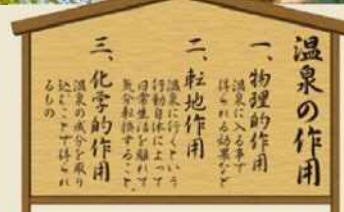 温泉の作用
一、物理的作用
温泉に入る事で
得られる効果など
二、転地作用
温泉に行くという
行動自体によって
日常生活を離れて
気分転換すること。
三、化学的作用
温泉の成分を取り
込むことで得られ
るもの